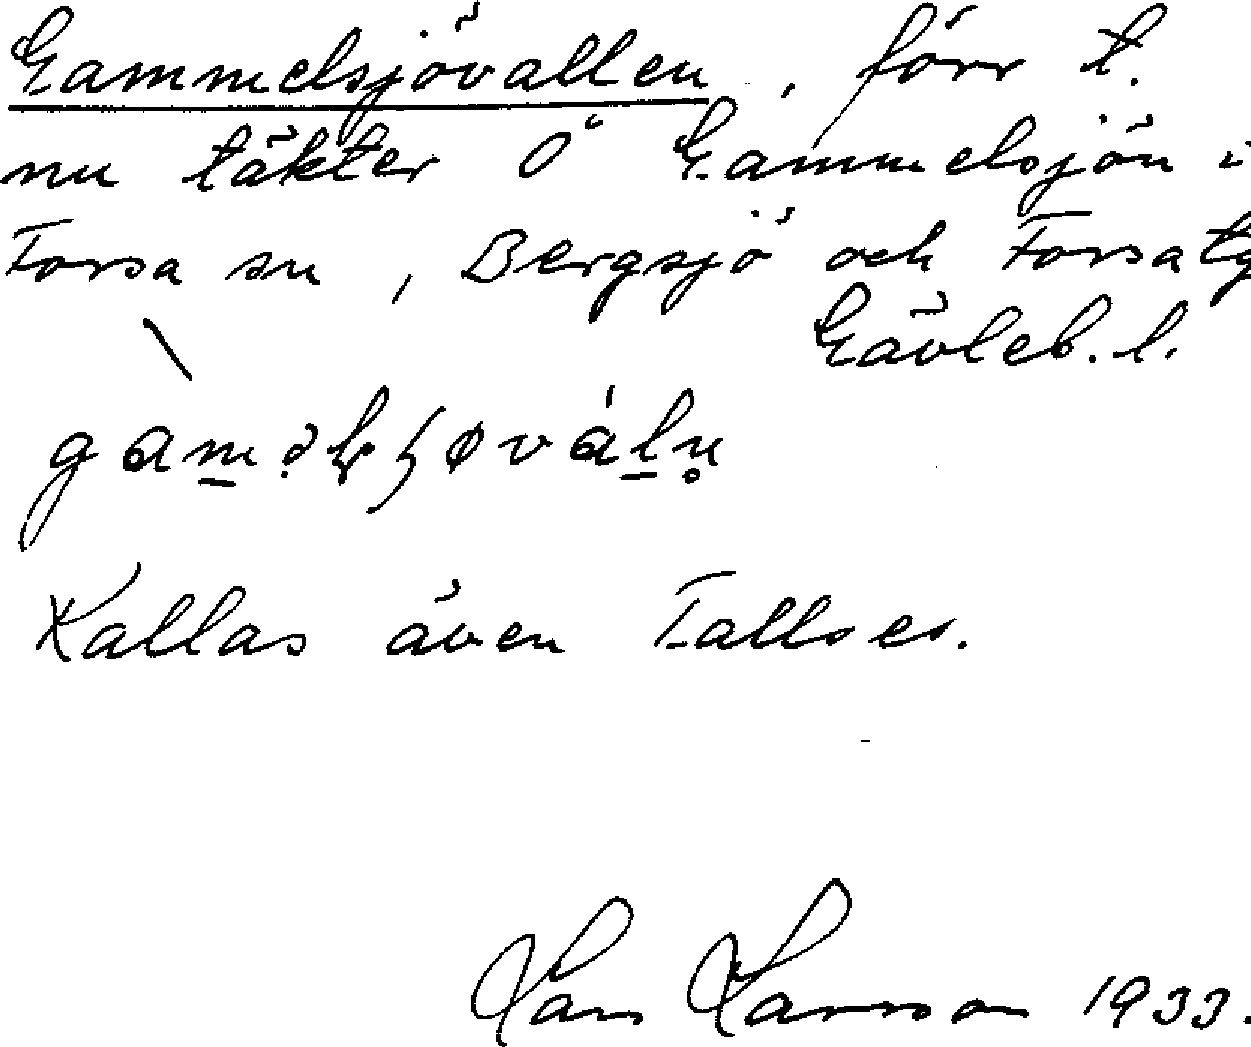 Gammelsjövallen, förr t.
nu täkter Ö Gammelsjön i
Forsa sn, Bergsjö och Forsa tg
Gävleb. l.
Kallas även Tallses.
Lars Larsson 1933.